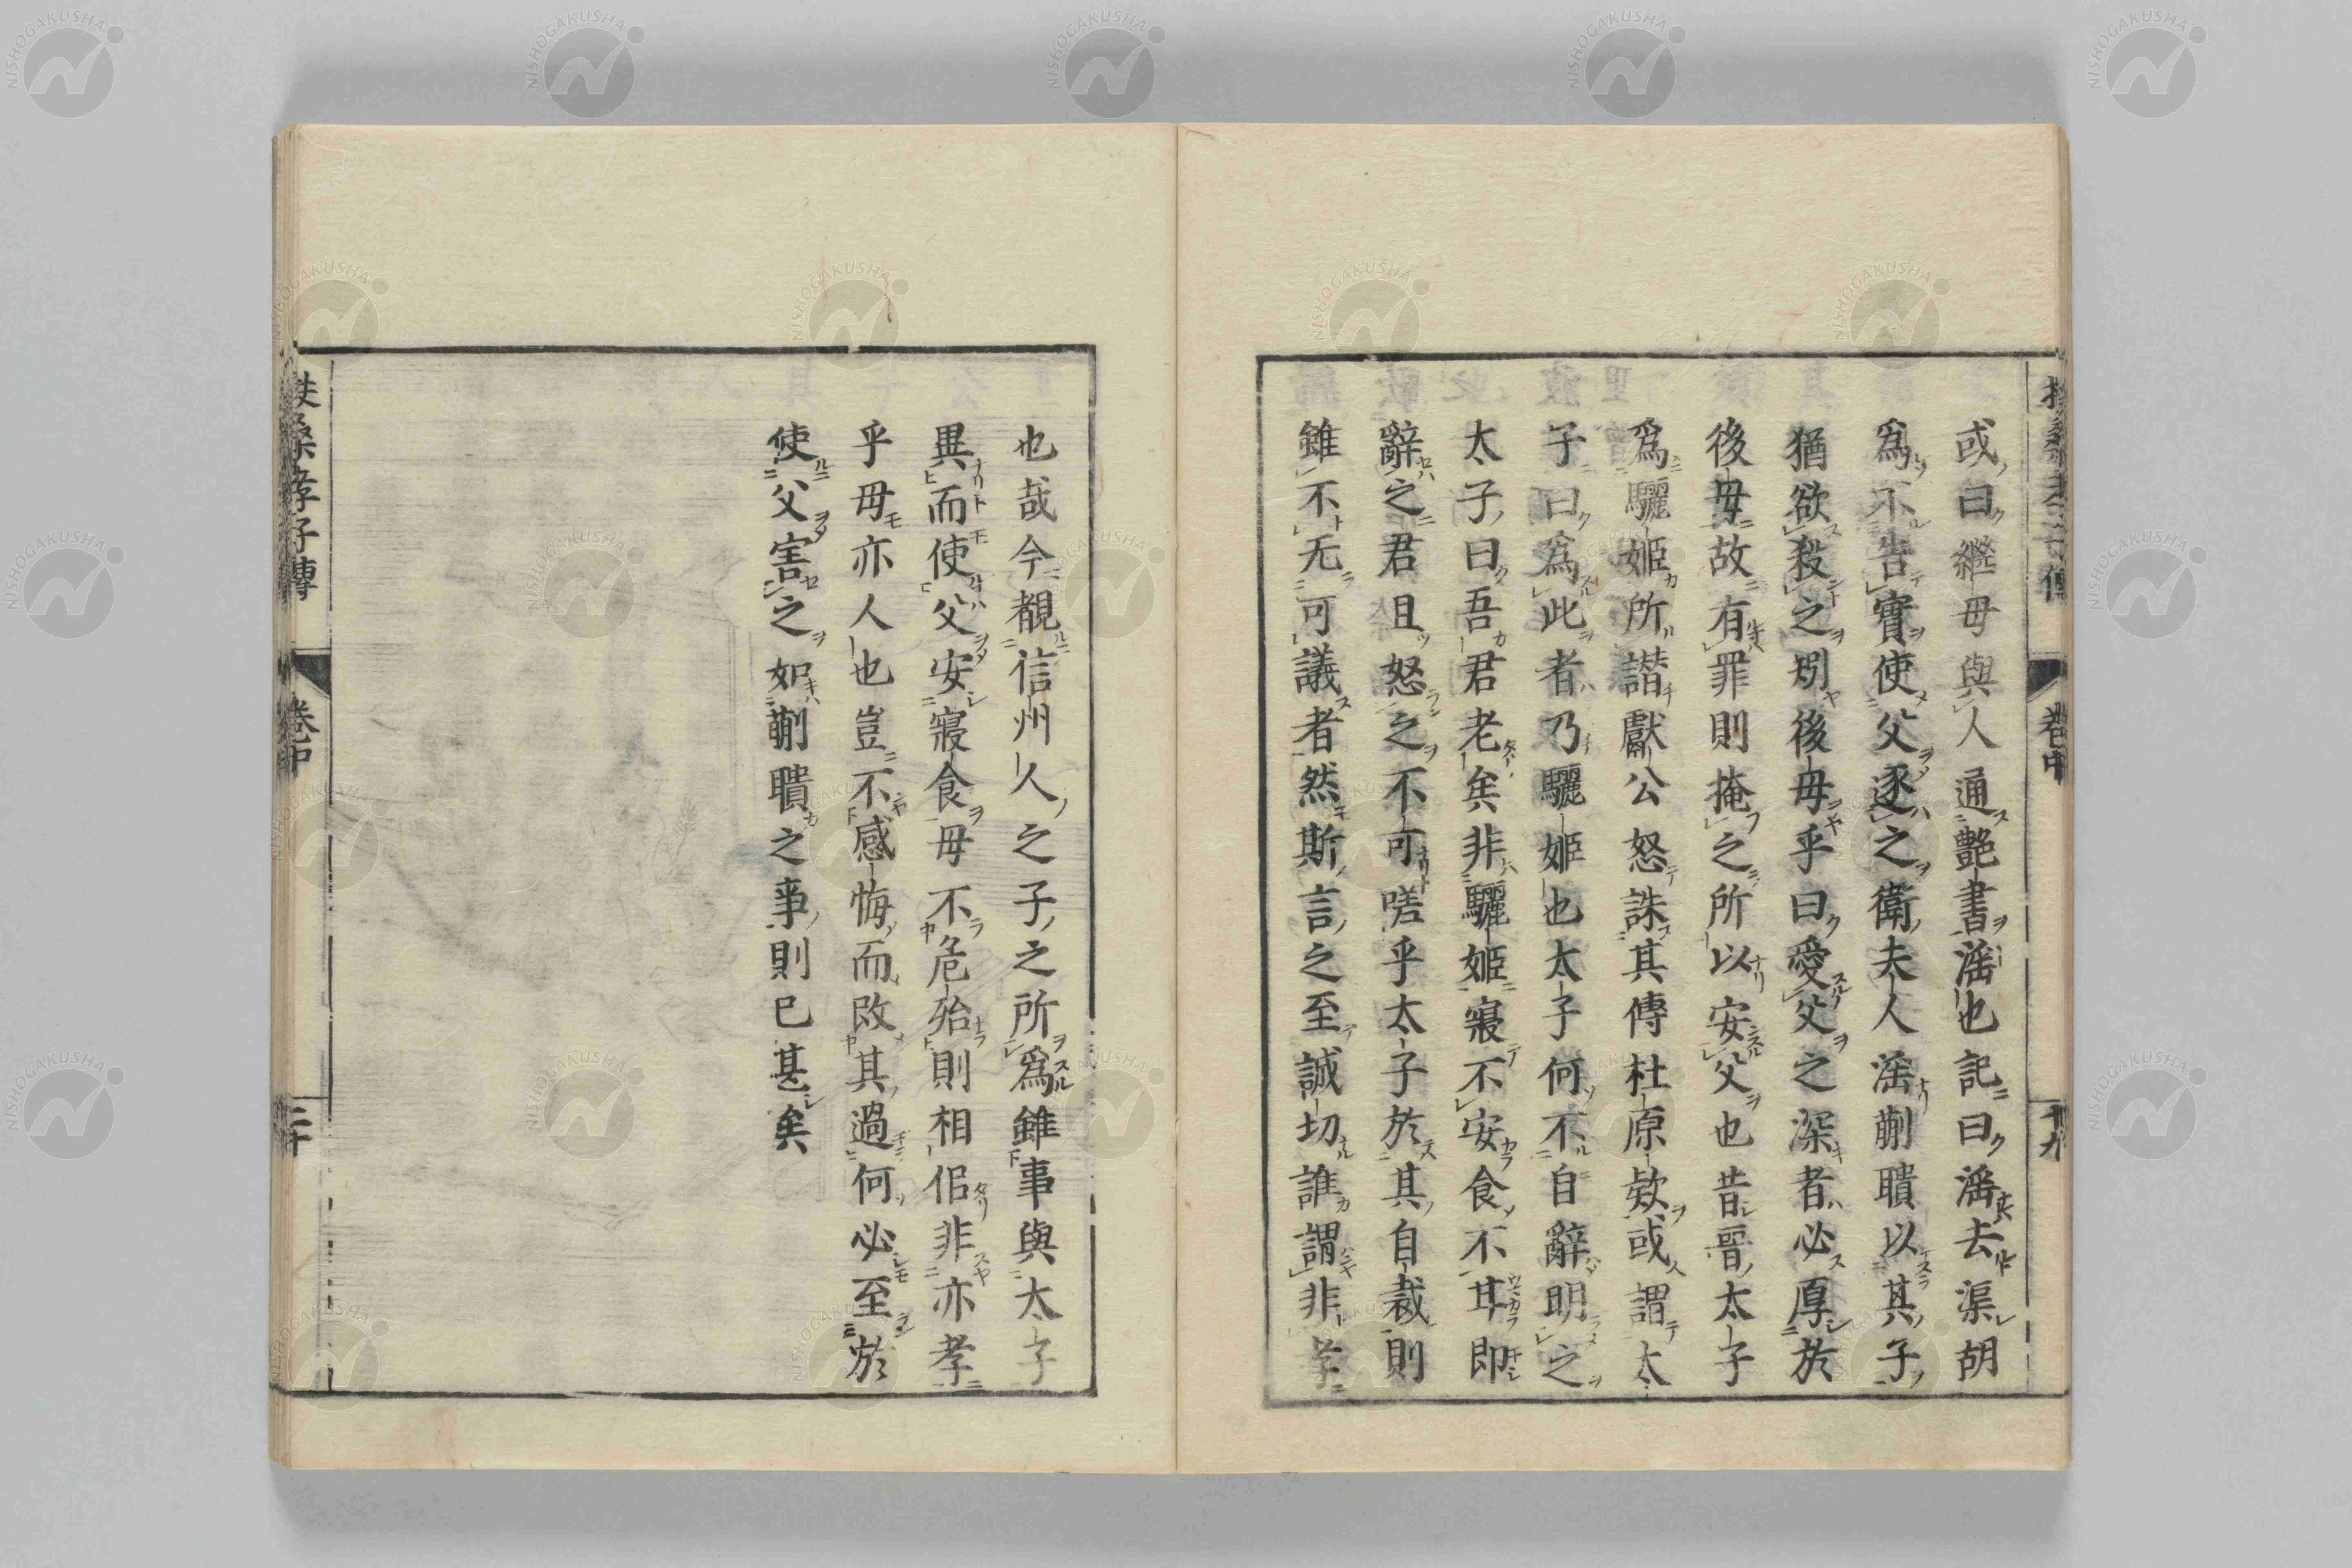 扶桑孝子傳 卷中 十九
或曰繼母與人通艶書滛也記曰滛去渠胡
爲不告實使父逐之衛夫人滛蒯聵以其子
猶欲殺之矧後母乎曰愛父之深者必厚於
後母故有罪則掩之所以安父也昔晉太子
爲驪姬所譖獻公怒誅其傅杜原欵或謂太
子曰爲此者乃驪姬也太子何不自辭明之
太子曰吾君老矣非驪姬寢不安食不甘即
辭之君且怒之不可嗟乎太子於其自裁則
雖不无可議者然斯言之至誠切誰謂非孝
也哉今覩信州人之子之所爲雖事與太子
異而使父安寢食母不危殆則相佀非亦孝
乎母亦人也豈不感悔而改其過何必至於
使父害之如蒯聵之事則已甚矣
扶桑孝子傳 卷中 二十
NISHOGAKUSHA